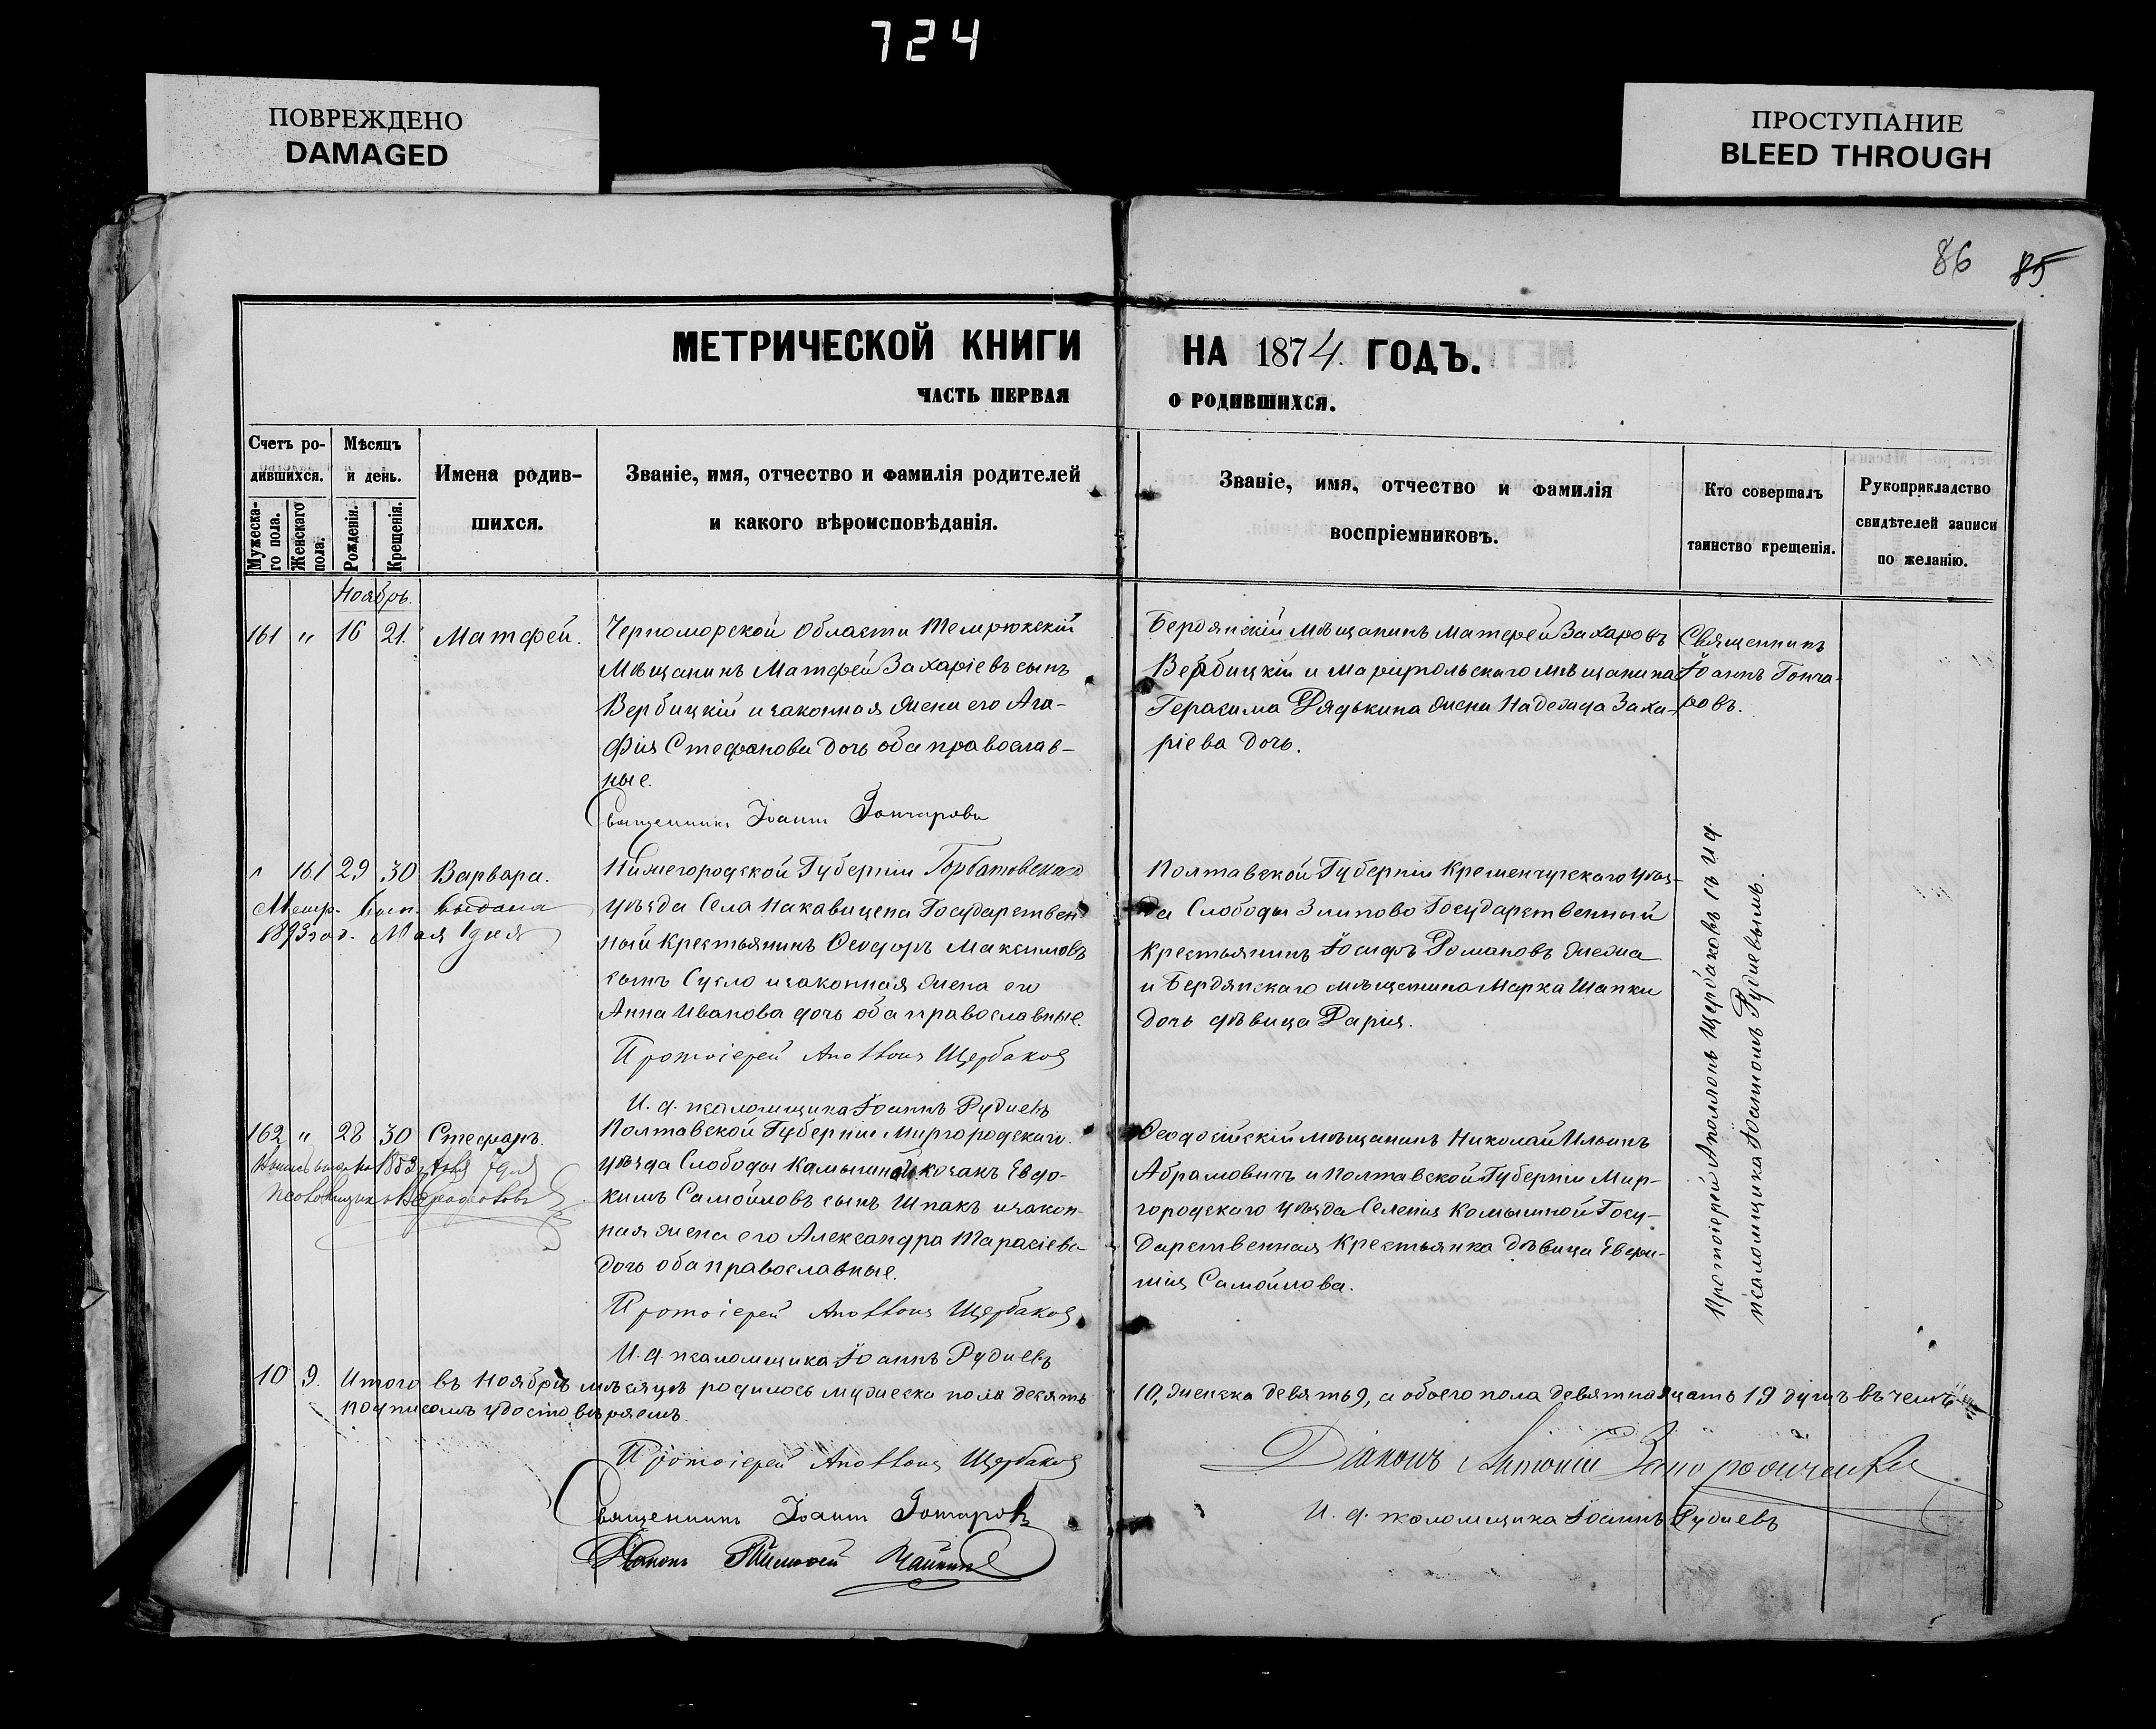 724
ПОВРЕЖДЕНО
DAMAGED
ПРОСТУПАНИЕ
BLEED THROUGH
86 85
МЕТРИЧЕСКОЙ КНИГИ НА 1874 ГОДЪ.
ЧАСТЬ ПЕРВАЯ О РОДИВШИХСЯ.
Счетъ ро-
дившихся.
Мужеска-
го пола.
Женскаго
пола.
Мѣсяцъ
и день.
Рожденія.
Крещенія.
Имена родив-
шихся.
Званіе, имя, отчество и фамилія родителей
и какого вѣроисповѣданія.
Званіе, имя, отчество и фамилія
воспріемниковъ.
Кто совершалъ
таинство крещенія.
Рукоприкладство
свидѣтелей записи
по желанію.
Ноябрь.
161 " 16 21. Матфей.
Черноморской Области Темрюкскій
Мѣщанинъ Матфей Захаріевъ сынъ
Вербицкій и законная жена его Ага-
фія Стефанова дочь оба православ-
ные.
Священникъ Іоаннъ Гончаровъ
Бердянскій мѣщанинъ Матфей Захаровъ
Вербицкій и Маріупольскаго мѣщанина
Герасима Рядькина жена Надежда Заха-
ріева дочь.
Священникъ
Іоаннъ Гонча-
ровъ.
" 161 29 30 Варвара.
Метр. вып. выдана
1893 год. Мая 1 дня
Нижегородской Губерніи Горбатовскаго
уѣзда Села Государствен-
ный Крестьянинъ Ѳеодоръ Максимовъ
сынъ Сусло и законная жена его
Анна Иванова дочь оба православные.
Протоіерей Аполлонъ Щербаковъ
И. д. псаломщика Іоаннъ Рудиевъ
Полтавской Губерніи Кременчугскаго уѣз-
да Слободы Государственный
крестьянинъ Іосифъ Романовъ
и Бердянскаго мѣщанина Марка Шапки
дочь дѣвица Дарія.
Протоіерей Аполлонъ Щербаковъ съ и д.
псаломщика Іоанномъ Рудиевымъ.
162 " 28 30 Стефанъ.
1883 7 дня
Полтавской Губерніи Миргородскаго
уѣзда Слободы Камышной козакъ Евдо-
кимъ Самойловъ сынъ Шпакъ и закон-
ная жена его Александра Тарасіева
дочь оба православные.
Протоіерей Аполлонъ Щербаковъ
И. д. псаломщика Іоаннъ Рудиевъ
Ѳеодосійскій мѣщанинъ Николай Ильинъ
Абрамовичъ и Полтавской Губерніи Мир-
городскаго уѣзда Селенія Комышной Госу-
дарственная Крестьянка дѣвица Евфи-
мія Самойлова.
10 9. Итого въ Ноябрѣ мѣсяцѣ родилось мужеска пола десять 10, женска девять 9, а обоего пола девятнадцать 19 душъ въ чемъ
подписомъ удостовѣряемъ.
Протоіерей Аполлонъ Щербаковъ
Священникъ Іоаннъ Гончаровъ
Діаконъ Тимофей
Діаконъ Антоній Запорожченко
И. д. псаломщика Іоаннъ Рудиевъ